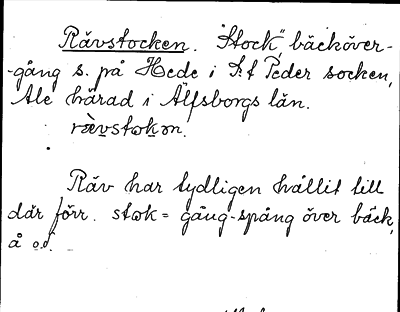 Rävstocken. "Stock", bäcköver-
-gång s. på Hede i S:t Peder socken,
Ale härad i Älfsborgs län.
rævstokən.
Räv har tydligen hållit till
där förr. stok = gång-spång över bäck,
å o.d.